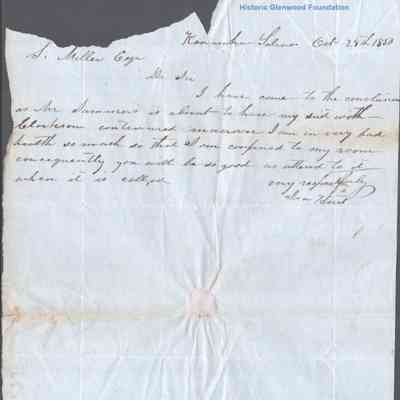 Historic Glenwood Foundation
Kanawha Salines Oct 29th 1850
S. Miller Esqr
Dr Sir
I have come to the conclusion
as Mr Summers is about to have my suit with
Clarkson continued moreover I am in very bad
health so much so that I am confined to my room
consequently you will be so good as attend to it
when it is called very respectfully
Hurst